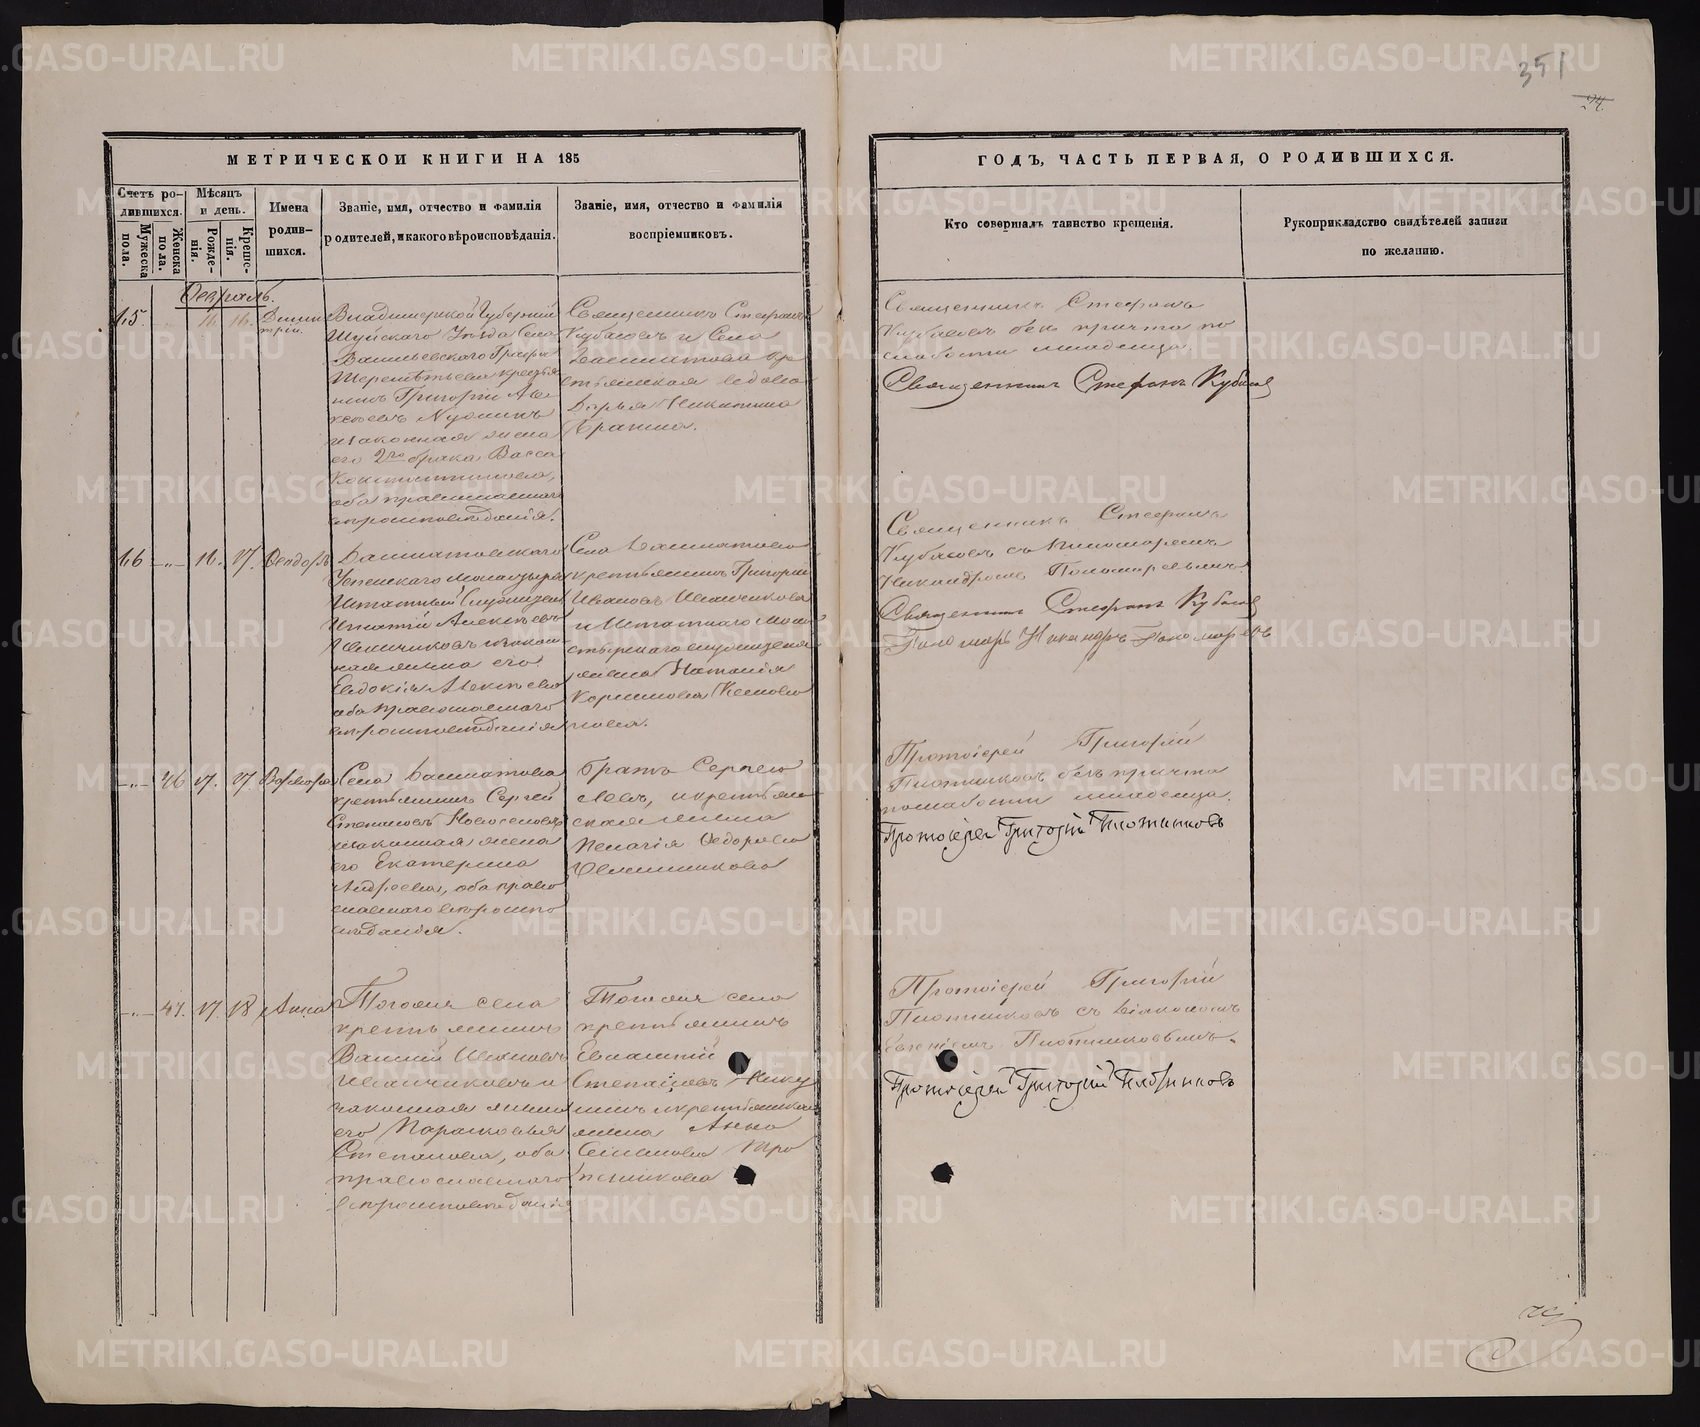 351
24.
МЕТРИЧЕСКОЙ КНИГИ НА 185
ГОДЪ, ЧАСТЬ ПЕРВАЯ, О РОДИВШИХСЯ.
Счетъ родившихся.
Мужеска пола.
Женска пола.
Мѣсяцъ и день.
Рожденія.
Крещенія.
Имена родившихся.
Званіе, имя, отчество и фамилія
родителей, и какого вѣроисповѣданія.
Званіе, имя, отчество и фамилія
воспріемниковъ.
Кто совершалъ таинство крещенія.
Рукоприкладство свидѣтелей записи
по желанію.
Февраль.
15. 16. 16.
Дими
трій.
Владимирской Губерніи
Шуйскаго Уѣзда Села
Васильевскаго Графа
Шереметьева крестья
нинъ Григорій Але
ксѣевъ
и законная жена
его 2го брака Васса
Константинова,
оба православнаго
вѣроисповѣданія.
Священникъ Стефанъ
Кубасовъ и Села
Далматова кре
стьянская вдова
Дарья Никитина
Священникъ Стефанъ
Кубасовъ безъ причта по
слабости младенца.
Священникъ Стефанъ Кубасов
16 16. 17. Феодоръ
Далматовскаго
Успенскаго Монастыря
Штатный служитель
Игнатій Алексѣевъ
Иванчиковъ и закон
ная жена его
Евдокія Алексѣева
оба православнаго
вѣроисповѣданія
Села Далматова
крестьянинъ Григорій
Ивановъ Иванчиковъ
и Штатнаго мона
стырскаго служителя
жена Наталія
Корнилова
Священникъ Стефанъ
Кубасовъ съ Пономаремъ
Никандромъ Пономаревымъ.
Священникъ Стефанъ Кубасов
Пономарь Никандръ Пономаревъ
46 17. 17. Варвара
Села Далматова
крестьянинъ Сергей
Степановъ Новоселовъ
и законная жена
его Екатерина
Андреева, оба право
славнаго вѣроиспо
вѣданія.
братъ Сергея
Левъ, и крестьян
ская жена
Пелагія Федорова
Протоіерей Григорій
Плотниковъ безъ причта
по слабости младенца.
Протоіерей Григорій Плотниковъ
47. 17. 18 Анна
Тогоже села
крестьянинъ
Василій Ивановъ
Иванчиковъ и
законная жена
его Параскевья
Степанова, оба
православнаго
вѣроисповѣданія
Тогоже села
крестьянинъ
Евлампій
Степановъ
и крестьянская
жена Анна
Семенова
Протоіерей Григорій
Плотниковъ съ Діакономъ
Евгеніемъ Плотниковымъ.
Протоіерей Григорій Плотниковъ